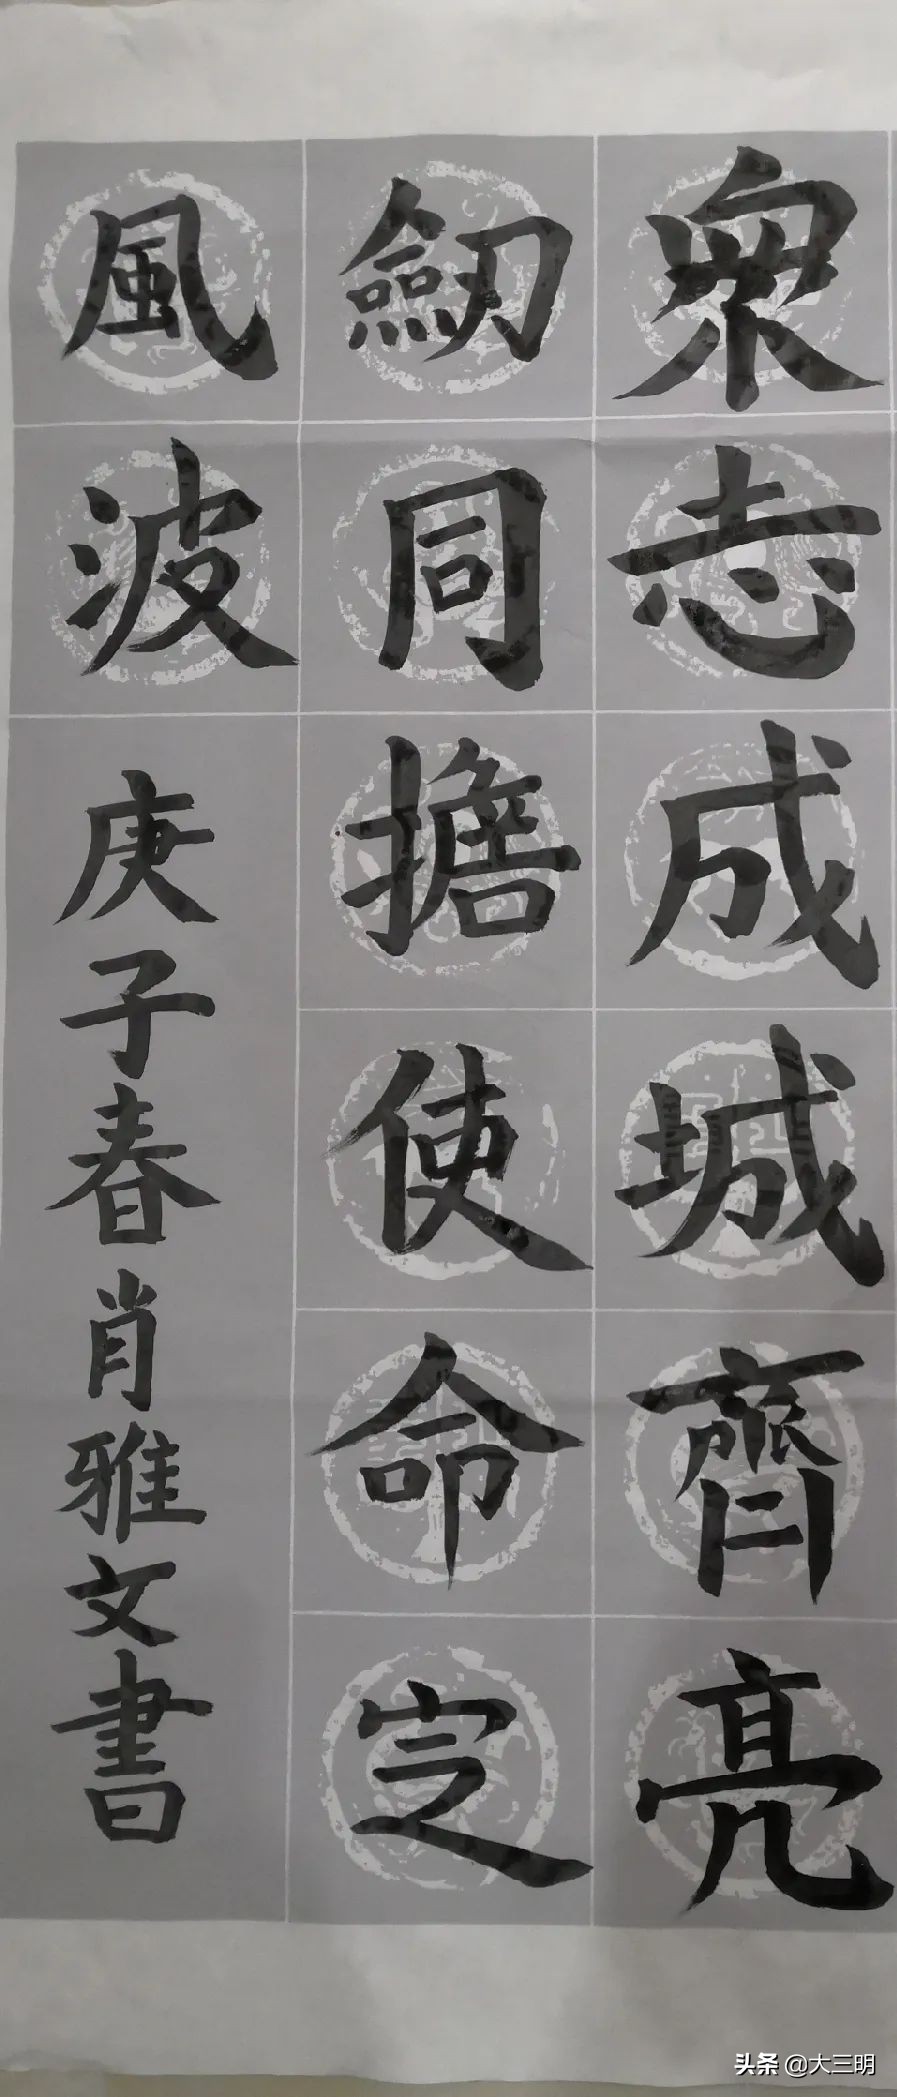 眾志成城齊亮
劒同擔使命定
風波
庚子春肖雅文書
头条 @大三明